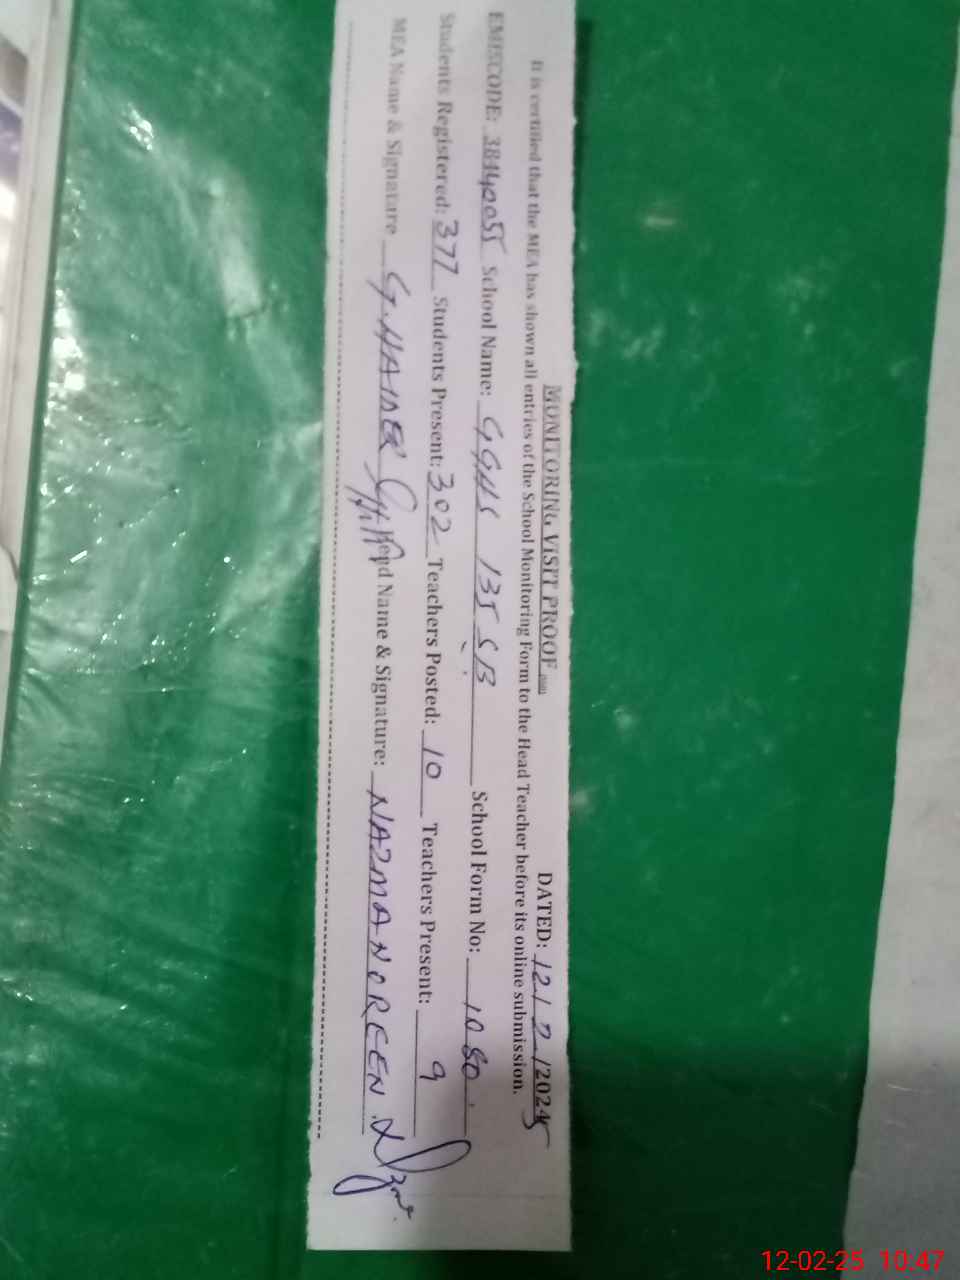 MONITORING VISIT PROOF
DATED: 12/2/2025
It is certified that the MEA has shown all entries of the School Monitoring Form to the Head Teacher before its online submission.
EMISCODE: 38440055 School Name: GGHS 135 SB School Form No: 1080
Students Registered: 377 Students Present: 302 Teachers Posted: 10 Teachers Present: 9
MEA Name & Signature G. HAIDER Head Name & Signature: NAZMA NOREEN
12-02-25 10:47